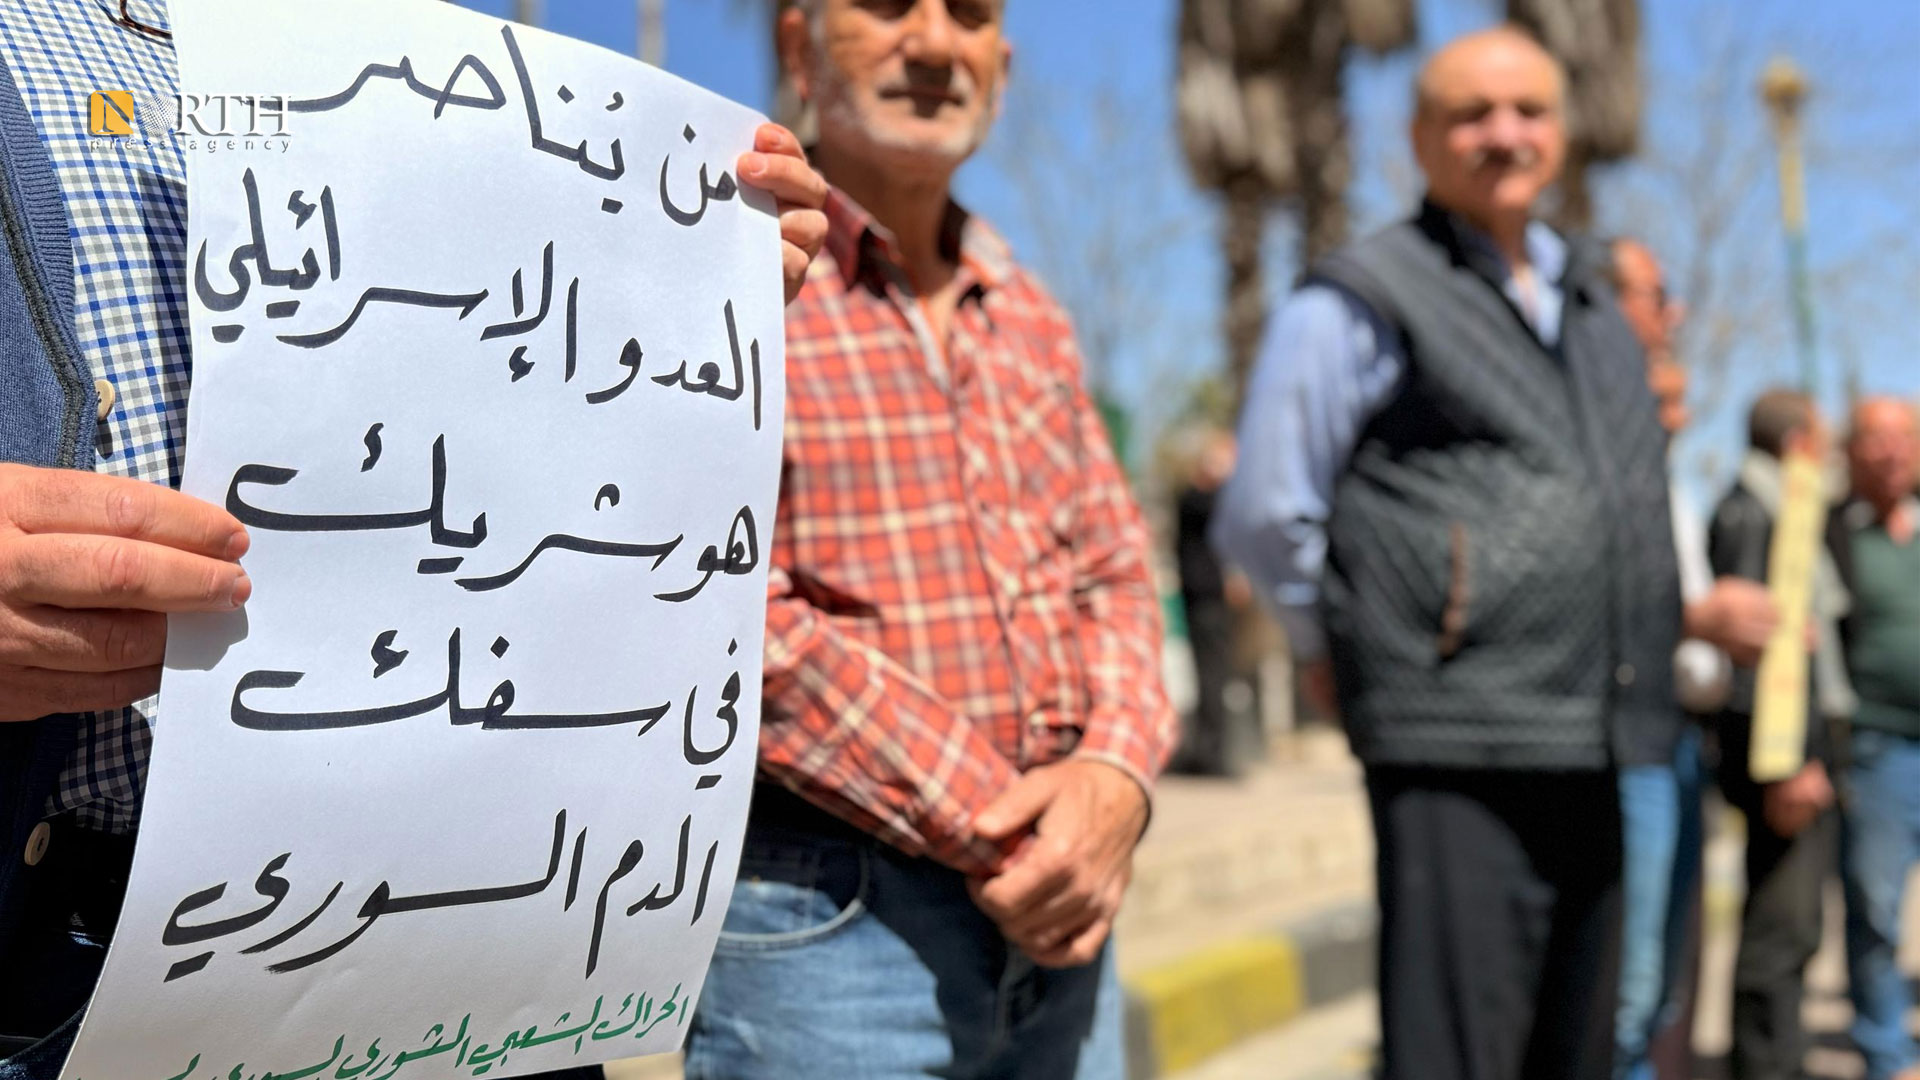 NORTH
press agency
من يُناصر
العدو الإسرائيلي
هو شريك
في سفك
الدم السوري
الحراك الشعبي الثوري